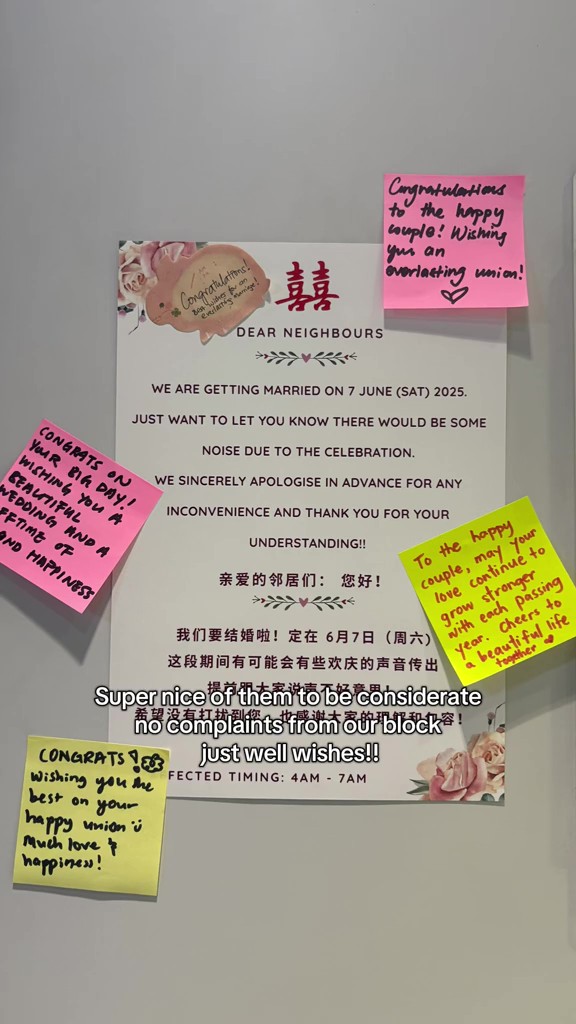 Congratulations
to the happy
couple! Wishing
you an
everlasting union!
Congratulations!
Best wishes for an
everlasting marriage!
囍
DEAR NEIGHBOURS
WE ARE GETTING MARRIED ON 7 JUNE (SAT) 2025.
JUST WANT TO LET YOU KNOW THERE WOULD BE SOME
NOISE DUE TO THE CELEBRATION.
WE SINCERELY APOLOGISE IN ADVANCE FOR ANY
INCONVENIENCE AND THANK YOU FOR YOUR
UNDERSTANDING!!
亲爱的邻居们： 您好！
我们要结婚啦！定在 6月7日（周六）
这段期间有可能会有些欢庆的声音传出
提前跟大家说声不好意思！
希望没有打扰到您，也感谢大家的理解和包容！
FECTED TIMING: 4AM - 7AM
CONGRATS ON
YOUR BIG DAY!
WISHING YOU A
BEAUTIFUL
WEDDING AND A
FETIME OF
AND HAPPINESS
To the happy
couple, may your
love continue to
grow stronger
with each passing
year. Cheers to
a beautiful life
together
Super nice of them to be considerate
no complaints from our block
just well wishes!!
CONGRATS!
Wishing you the
best on your
happy union
Much love &
happiness!